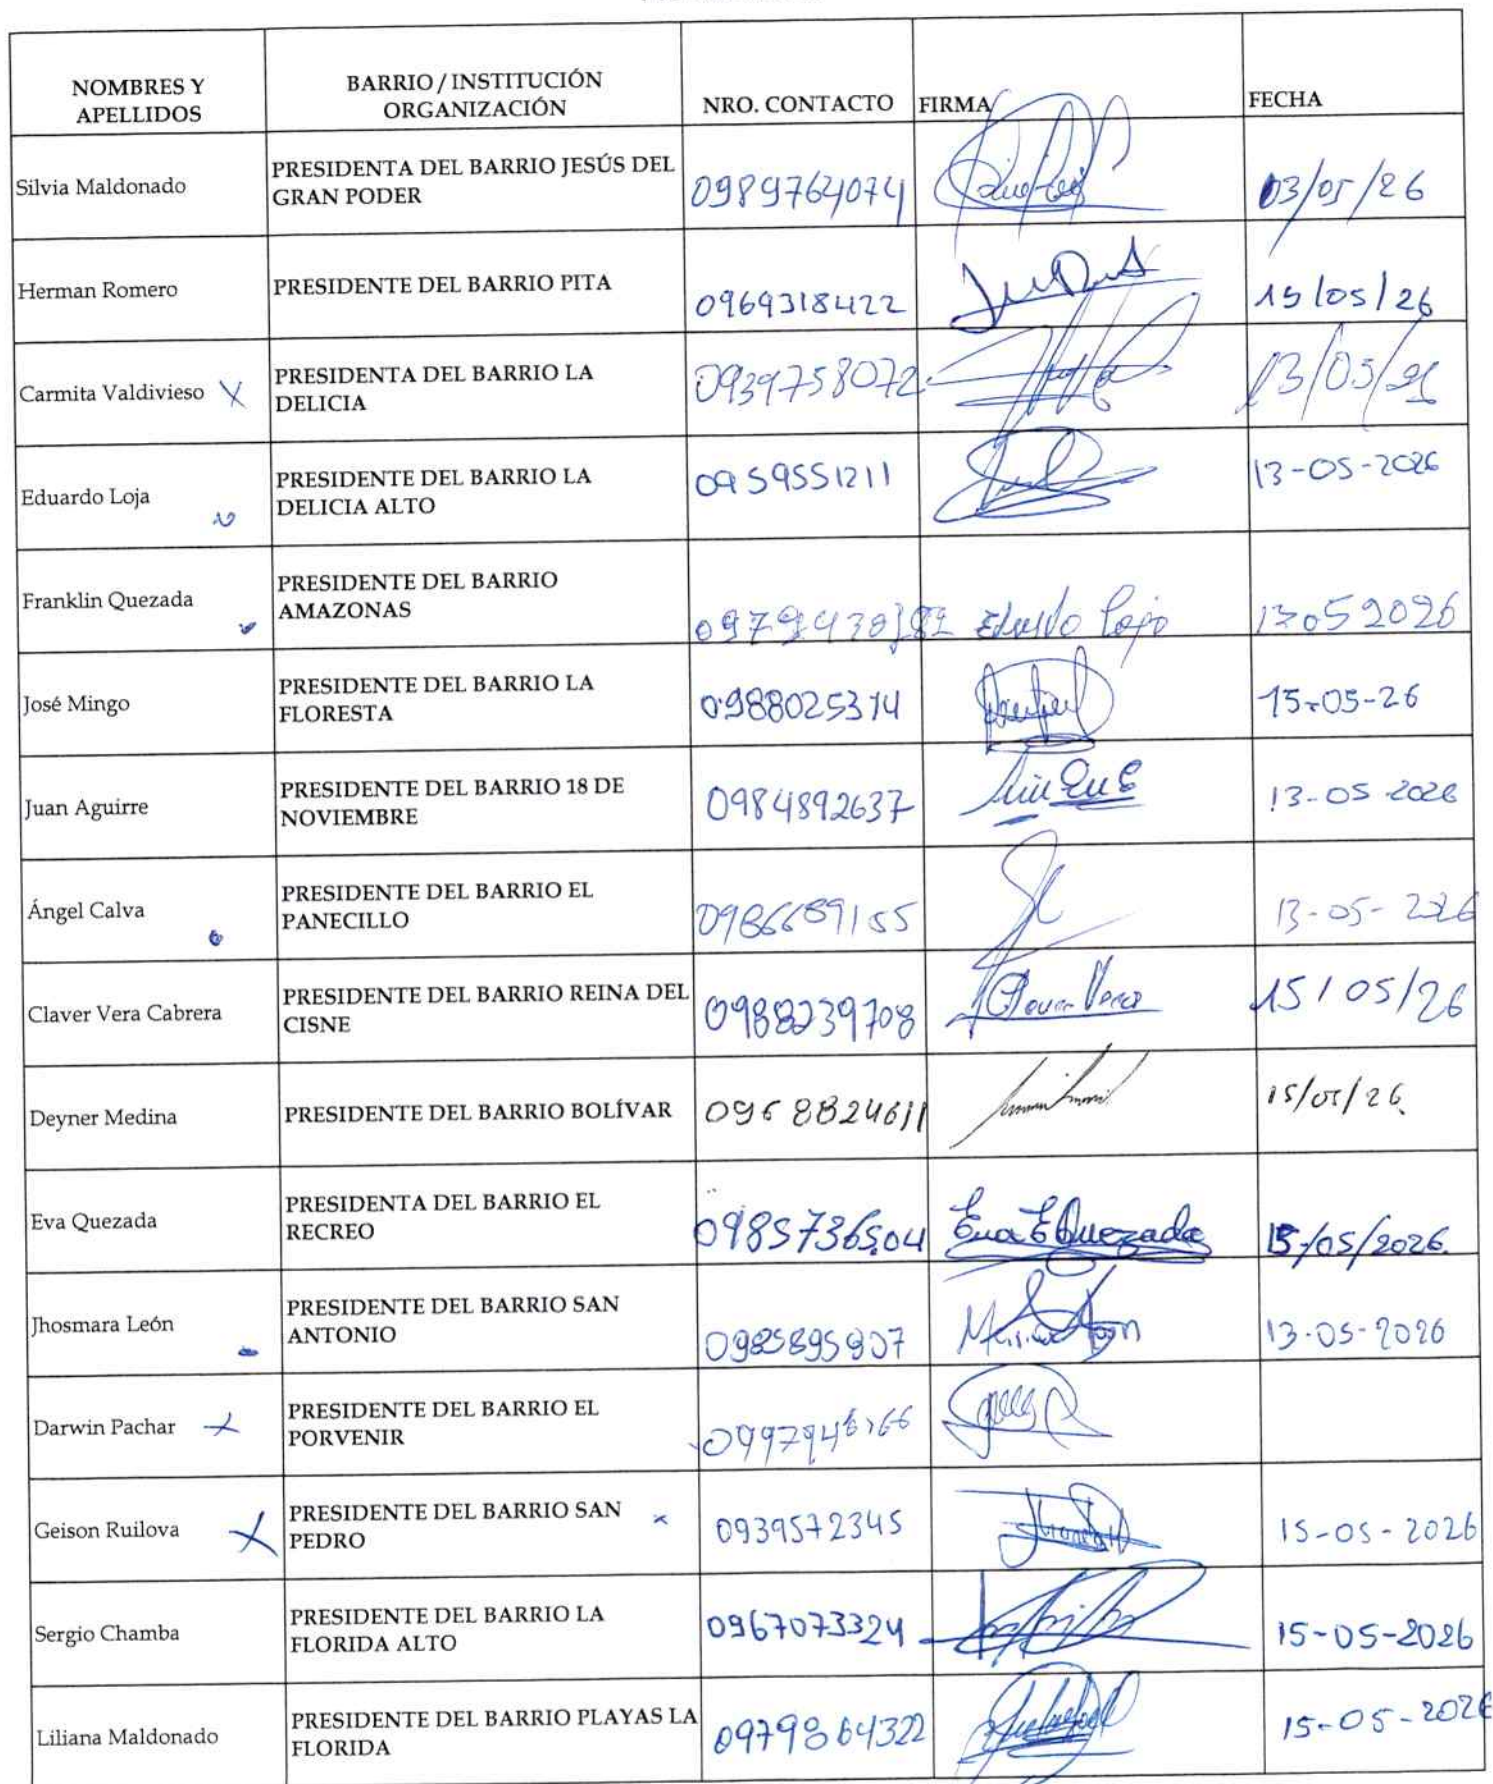 NOMBRES Y
APELLIDOS
BARRIO / INSTITUCIÓN
ORGANIZACIÓN
NRO. CONTACTO
FIRMA
FECHA
Silvia Maldonado
PRESIDENTA DEL BARRIO JESÚS DEL
GRAN PODER
03/05/26
Herman Romero
PRESIDENTE DEL BARRIO PITA
0969318422
15/05/26
Carmita Valdivieso
PRESIDENTA DEL BARRIO LA
DELICIA
0939758072
Eduardo Loja
PRESIDENTE DEL BARRIO LA
DELICIA ALTO
0959551211
13-05-2026
Franklin Quezada
PRESIDENTE DEL BARRIO
AMAZONAS
13052026
José Mingo
PRESIDENTE DEL BARRIO LA
FLORESTA
0988025314
15-05-26
Juan Aguirre
PRESIDENTE DEL BARRIO 18 DE
NOVIEMBRE
0984892637
13-05-2026
Ángel Calva
PRESIDENTE DEL BARRIO EL
PANECILLO
13-05-2026
Claver Vera Cabrera
PRESIDENTE DEL BARRIO REINA DEL
CISNE
0988239708
Claver Vera
15/05/26
Deyner Medina
PRESIDENTE DEL BARRIO BOLÍVAR
0968824611
15/05/26
Eva Quezada
PRESIDENTA DEL BARRIO EL
RECREO
0985736504
Eva E Quezada
15/05/2026
Jhosmara León
PRESIDENTE DEL BARRIO SAN
ANTONIO
13-05-2026
Darwin Pachar
PRESIDENTE DEL BARRIO EL
PORVENIR
Geison Ruilova
PRESIDENTE DEL BARRIO SAN
PEDRO
0939572345
15-05-2026
Sergio Chamba
PRESIDENTE DEL BARRIO LA
FLORIDA ALTO
0967073324
15-05-2026
Liliana Maldonado
PRESIDENTE DEL BARRIO PLAYAS LA
FLORIDA
0979864322
15-05-2026